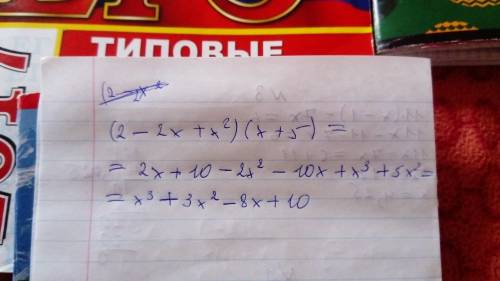 ТИПОВЫЕ
(2 - 2x + x²)(x + 5) =
= 2x + 10 - 2x² - 10x + x³ + 5x² =
= x³ + 3x² - 8x + 10